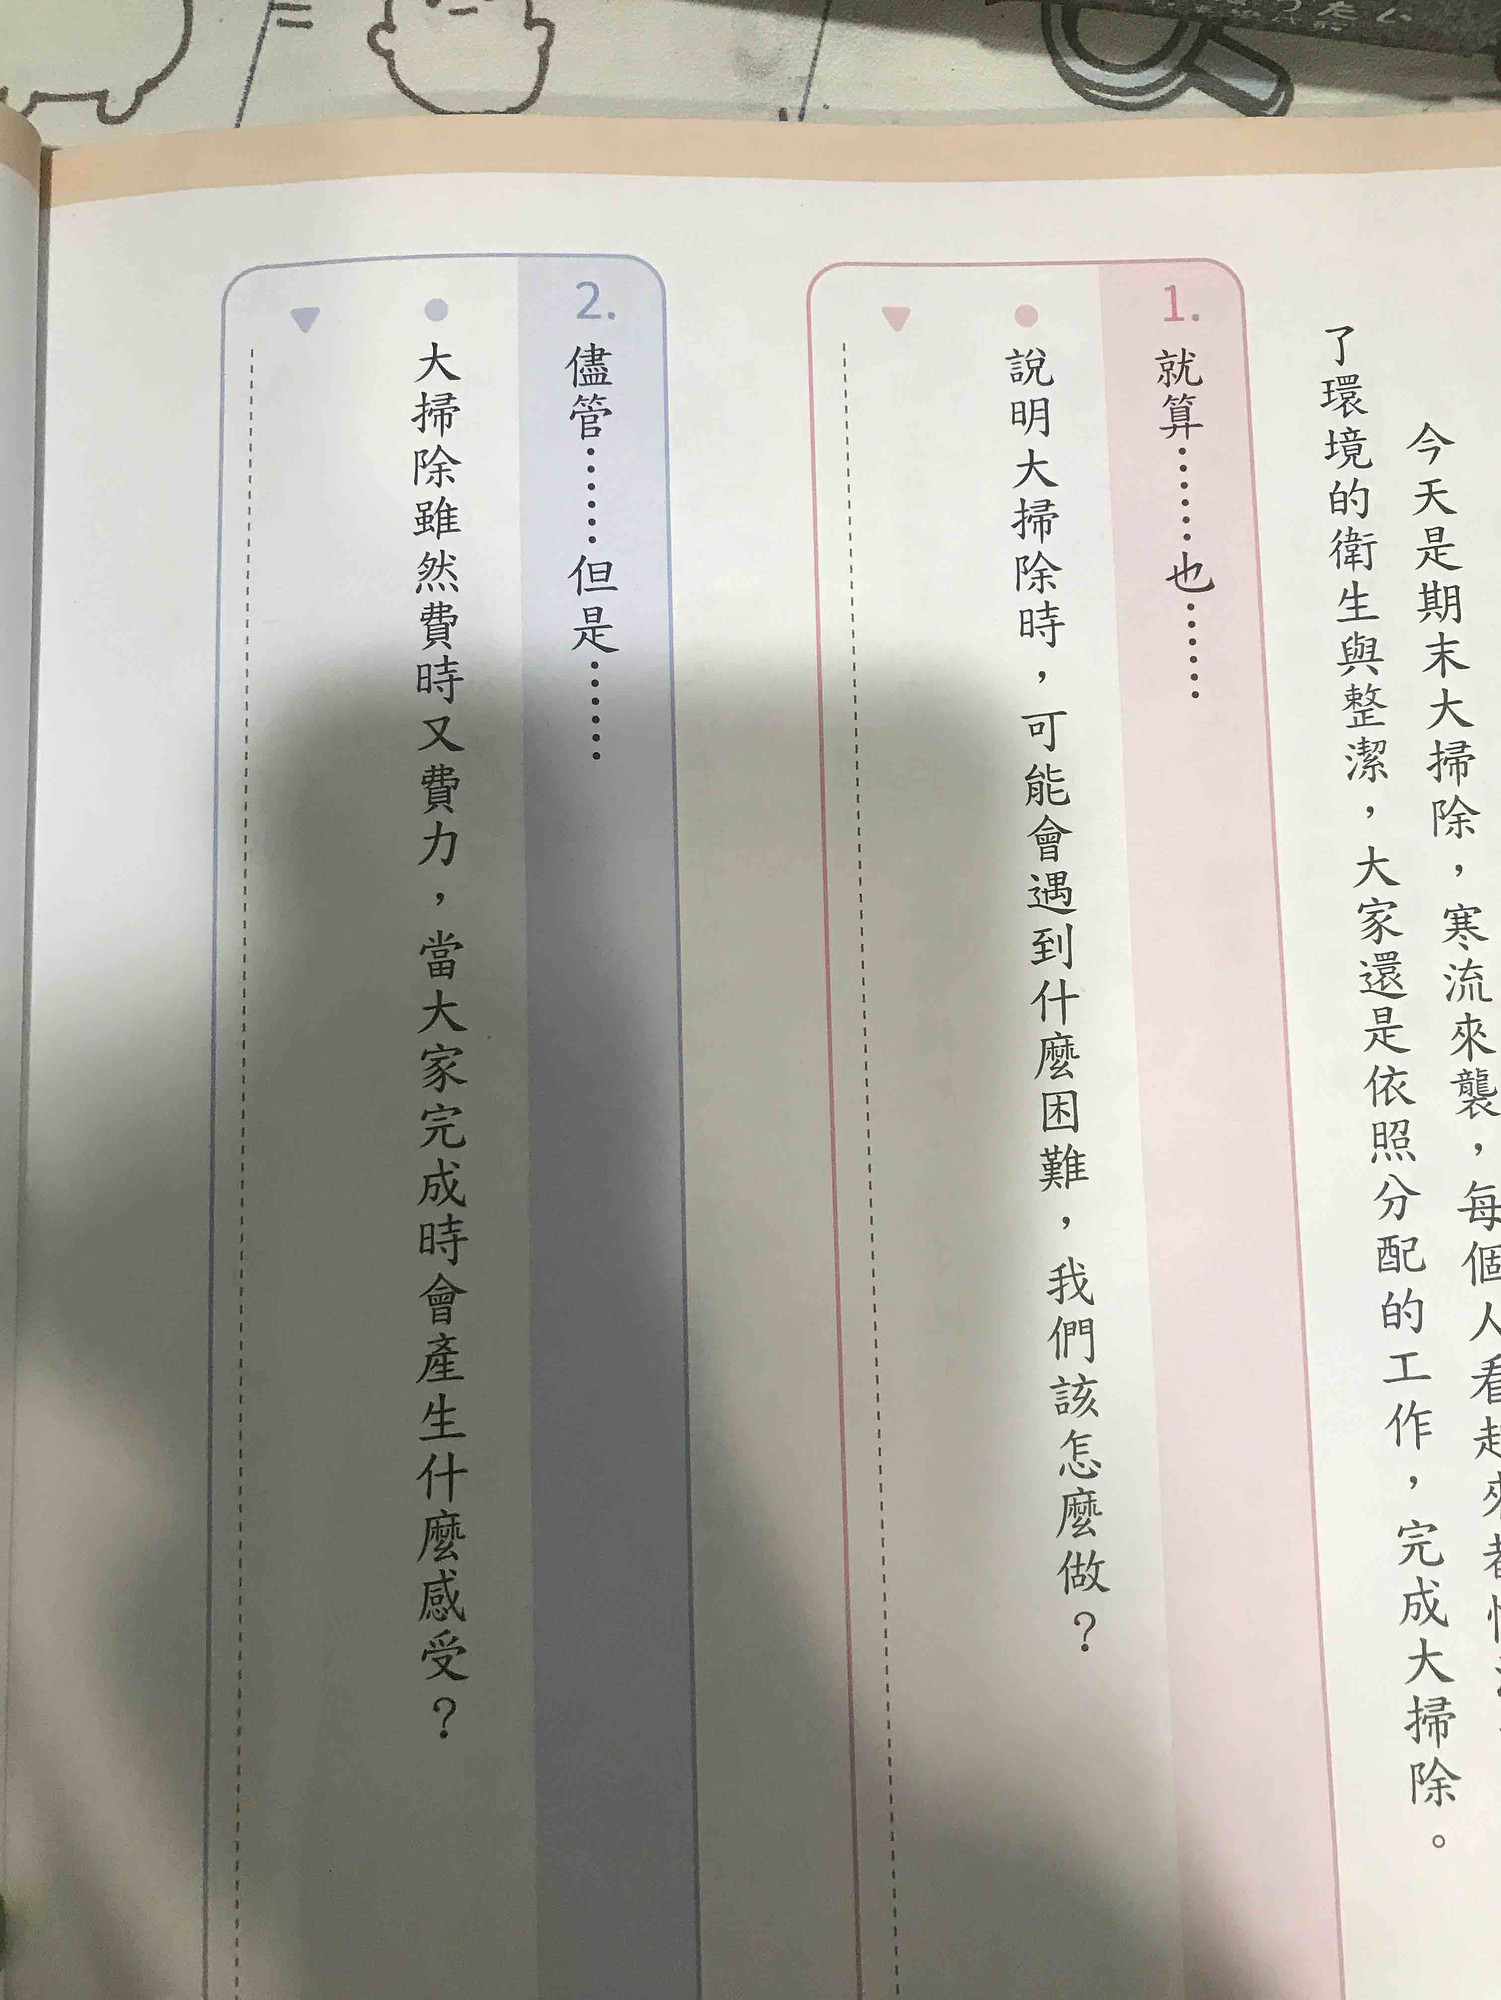 今天是期末大掃除，寒流來襲，每個人看起來都
了環境的衛生與整潔，大家還是依照分配的工作，完成大掃除。
1. 就算⋯⋯也⋯⋯
說明大掃除時，可能會遇到什麼困難，我們該怎麼做？
2. 儘管⋯⋯但是⋯⋯
大掃除雖然費時又費力，當大家完成時會產生什麼感受？